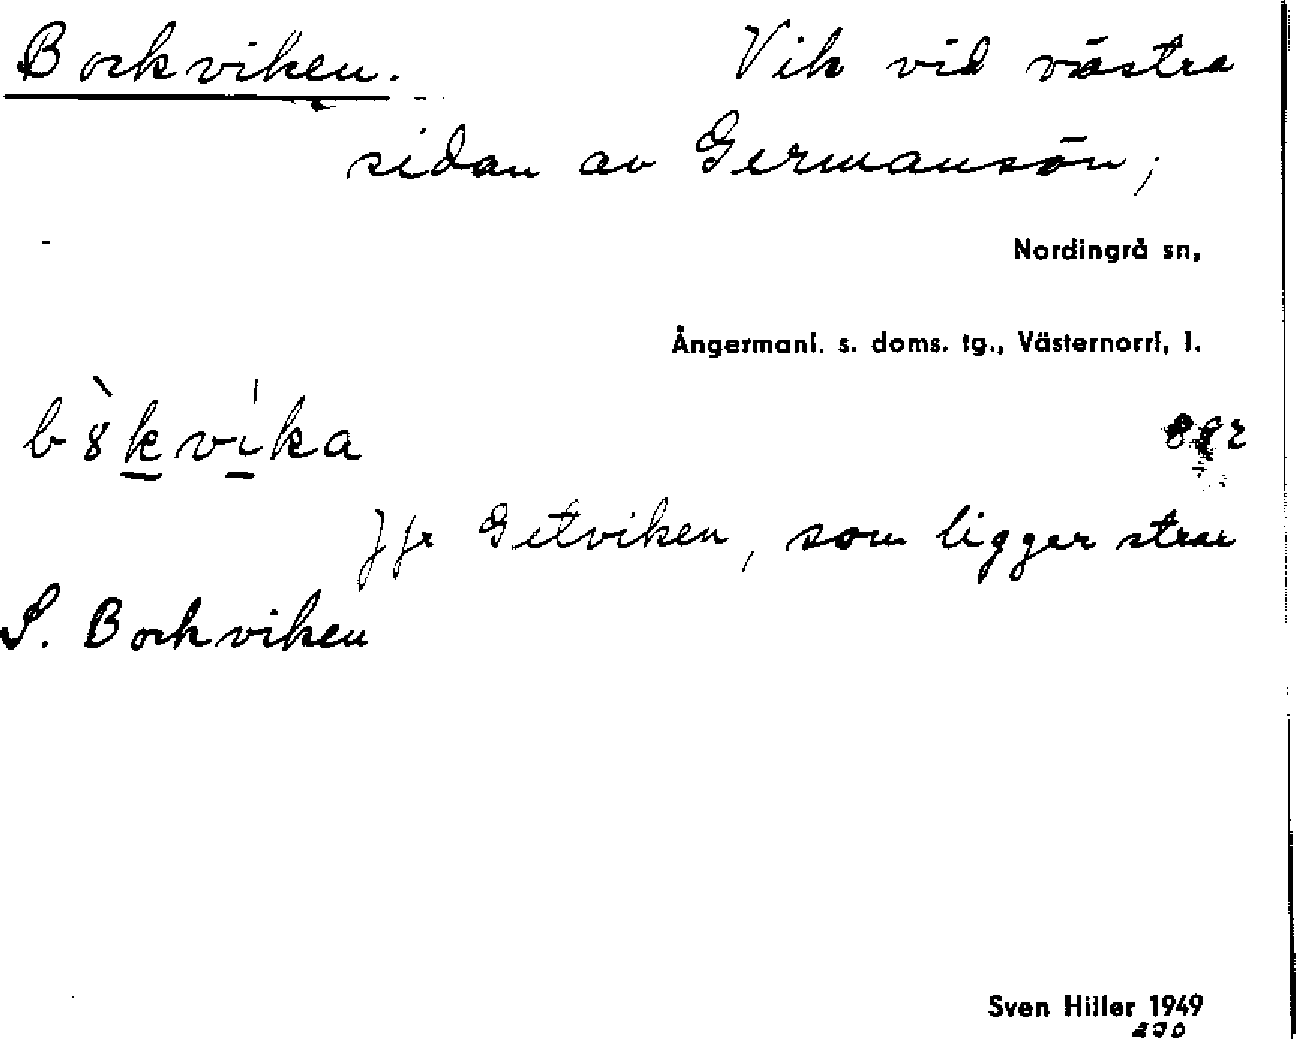 Bockviken. Vik vid västra
sidan av Germansön,
Nordingrå sn,
Ångermanl. s. doms. tg., Västernorrl. l.
b8̀kvíka
Jfr Getviken, som ligger strax
S. Bockviken
Sven Hiller 1949